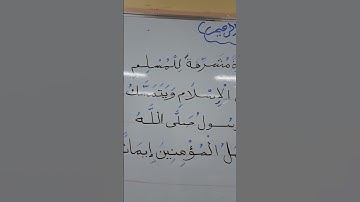 الرحيم
مُشَرِّفَةً لِلْمُسْلِمِ
الْإِسْلَامِ وَيَتَمَسَّكُ
رَسُولُ صَلَّى اللَّهُ
الْمُؤْمِنِينَ إِيمَانًا